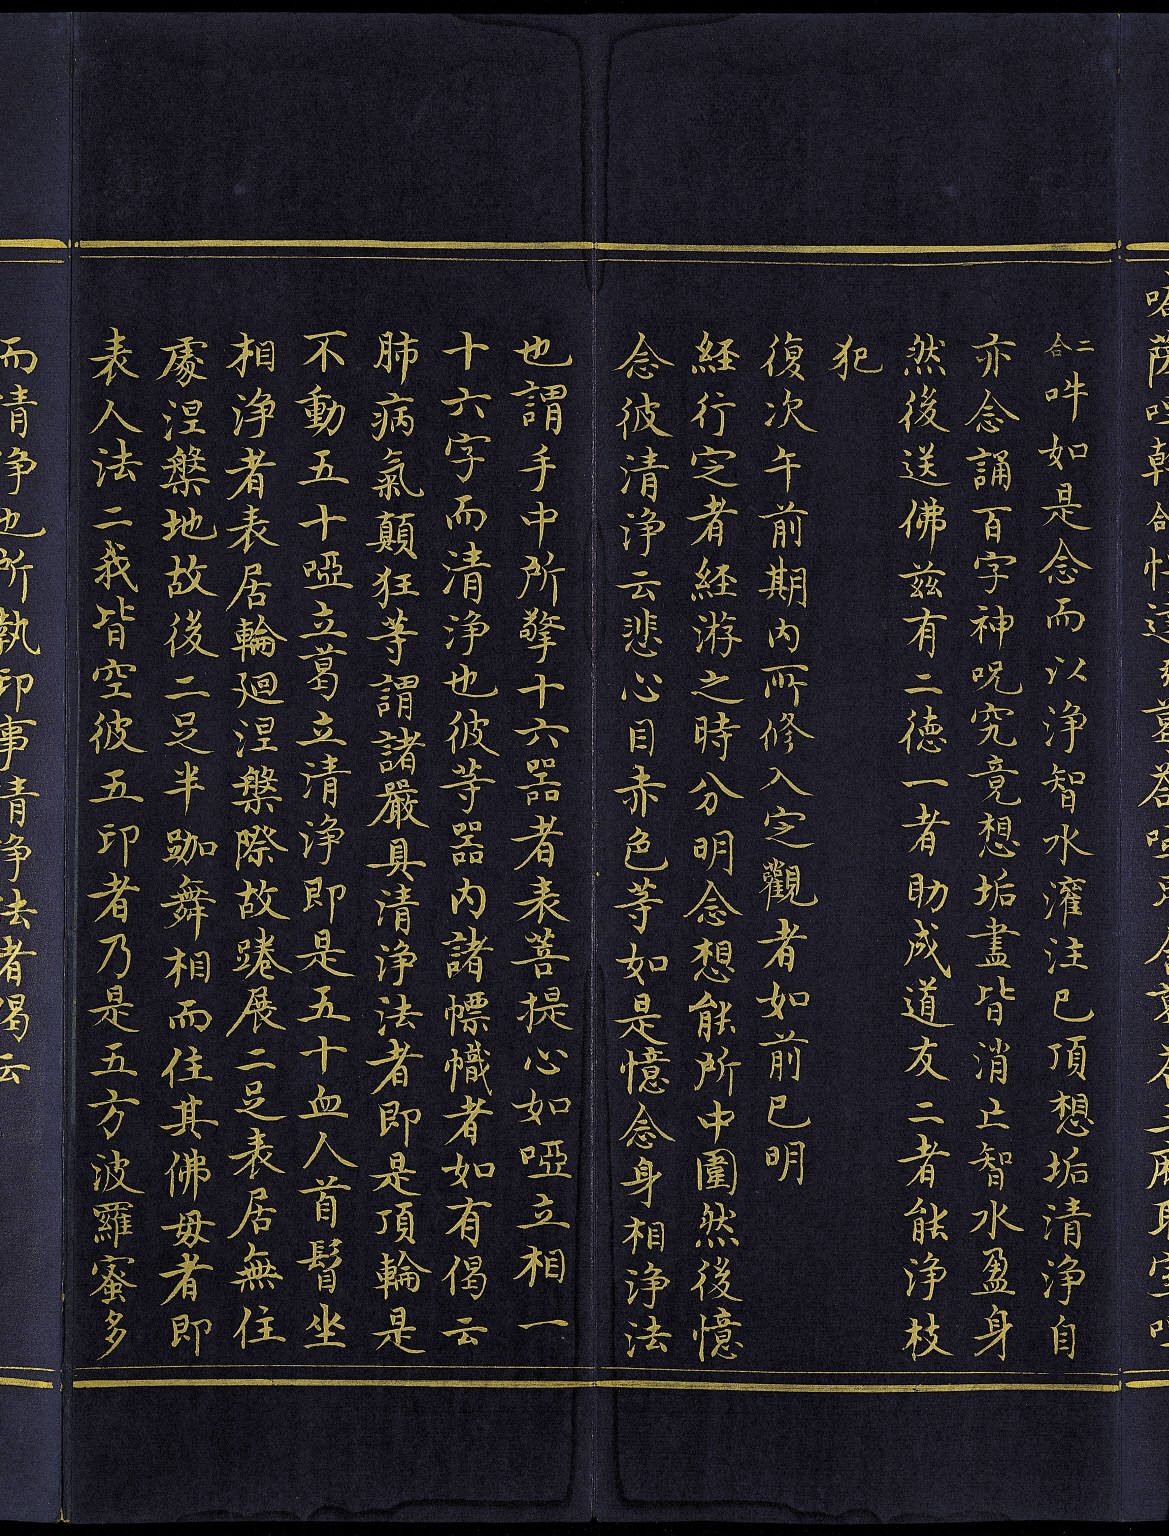 二合吽如是念而以淨智水灌注已頂想垢清淨自
亦念誦百字神呪究竟想垢盡皆消上智水盈身
然後送佛茲有二德一者助成道友二者能淨枝
犯
復次午前期內所修入定觀者如前已明
経行定者経游之時分明念想能所中圍然後憶
念彼清淨云悲心目赤色等如是憶念身相淨法
也謂手中所擎十六器者表菩提心如啞立相一
十六字而清淨也彼等器內諸幖幟者如有偈云
肺病氣顛狂等謂諸嚴具清淨法者即是頂輪是
不動五十啞立葛立清淨即是五十血人首髻坐
相淨者表居輪廻涅槃際故踡展二足表居無住
處涅槃地故後二足半跏舞相而住其佛毋者即
表人法二我皆空彼五印者乃是五方波羅蜜多
而清淨也所執印事清淨法者偈云